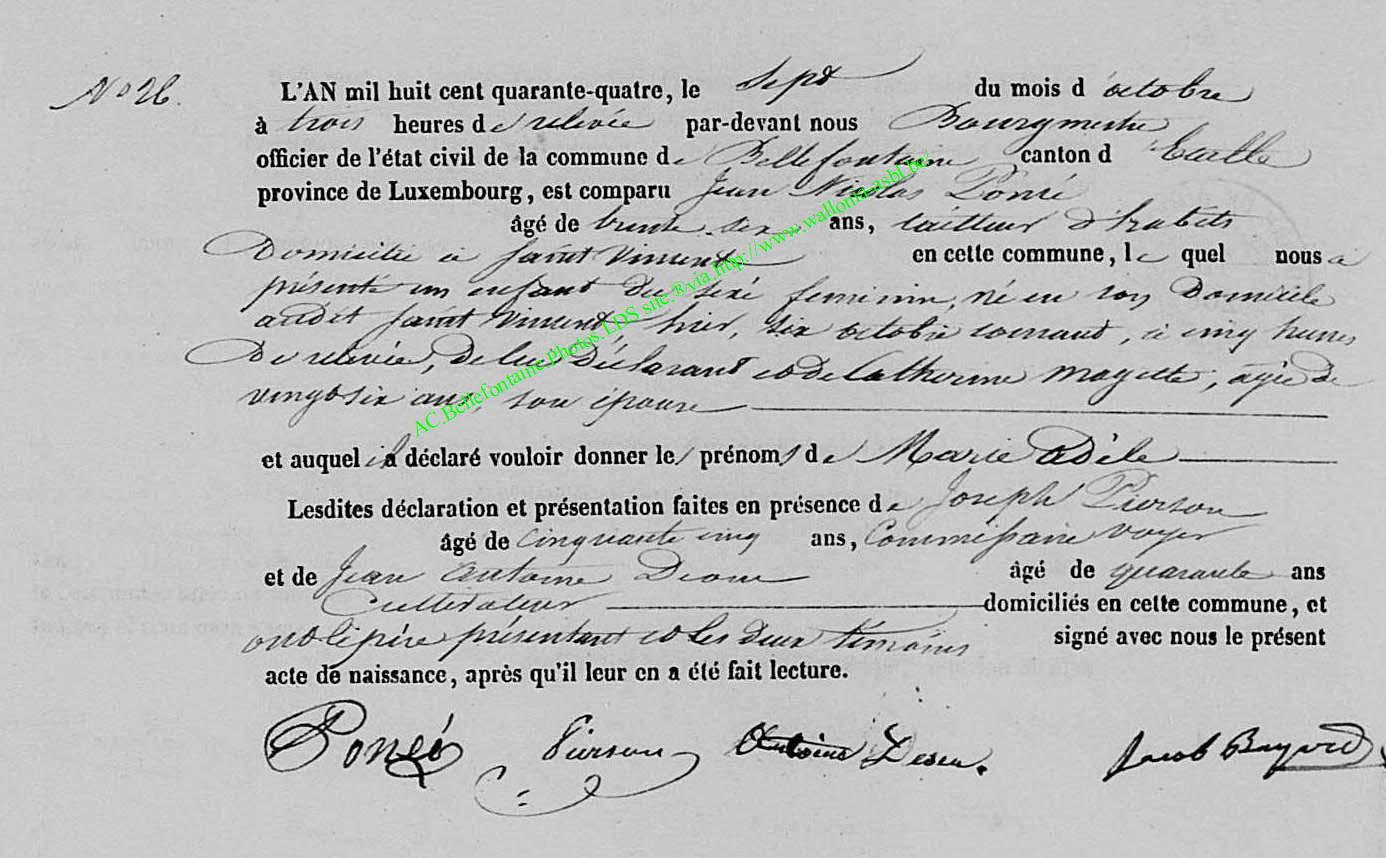 N° 26.
L'AN mil huit cent quarante-quatre, le sept du mois d'octobre
à trois heures de relevée par-devant nous Bourgmestre
officier de l'état civil de la commune de Bellefontaine canton d'Etalle
province de Luxembourg, est comparu Jean Nicolas Poncé
âgé de trente six ans, tailleur d'habits
Domicilié à Saint Vincent en cette commune, lequel nous a
présenté un enfant du sexe feminin, né en son Domicile
audit Saint Vincent hier, six octobre courant, à cinq heures
De relevée, de lui Déclarant et de Catherine Magette, agée de
vingt six ans, son épouse
et auquel il a déclaré vouloir donner les prénoms de Marie Adèle
Lesdites déclaration et présentation faites en présence de Joseph Pierson
âgé de cinquante cinq ans, Commissaire voyer
et de Jean Antoine âgé de quarante ans
Cultivateur domiciliés en cette commune, et
ont le père présentant et les deux témoins signé avec nous le présent
acte de naissance, après qu'il leur en a été fait lecture.
Poncé Pierson Antoine Jacob Bayard
AC.Bellefontaine.Photos.LDS site.®via.http://www.wallonia-asbl.be/